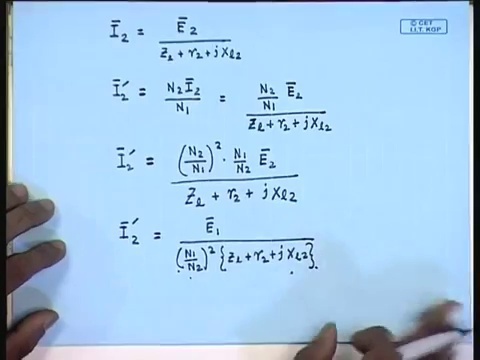 © CET
I.I.T. KGP
Ī₂ = Ē₂ / (Z_l + r₂ + jx_l2)
Ī₂′ = N₂Ī₂ / N₁ = (N₂/N₁) Ē₂ / (Z_l + r₂ + jx_l2)
Ī₂′ = (N₂/N₁)² · (N₁/N₂) Ē₂ / (Z_l + r₂ + jx_l2)
Ī₂′ = Ē₁ / ((N₁/N₂)² {Z_l + r₂ + jx_l2})